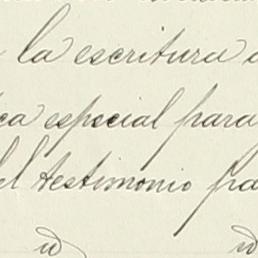 la escritura
ca especial para
del testimonio pa
id id